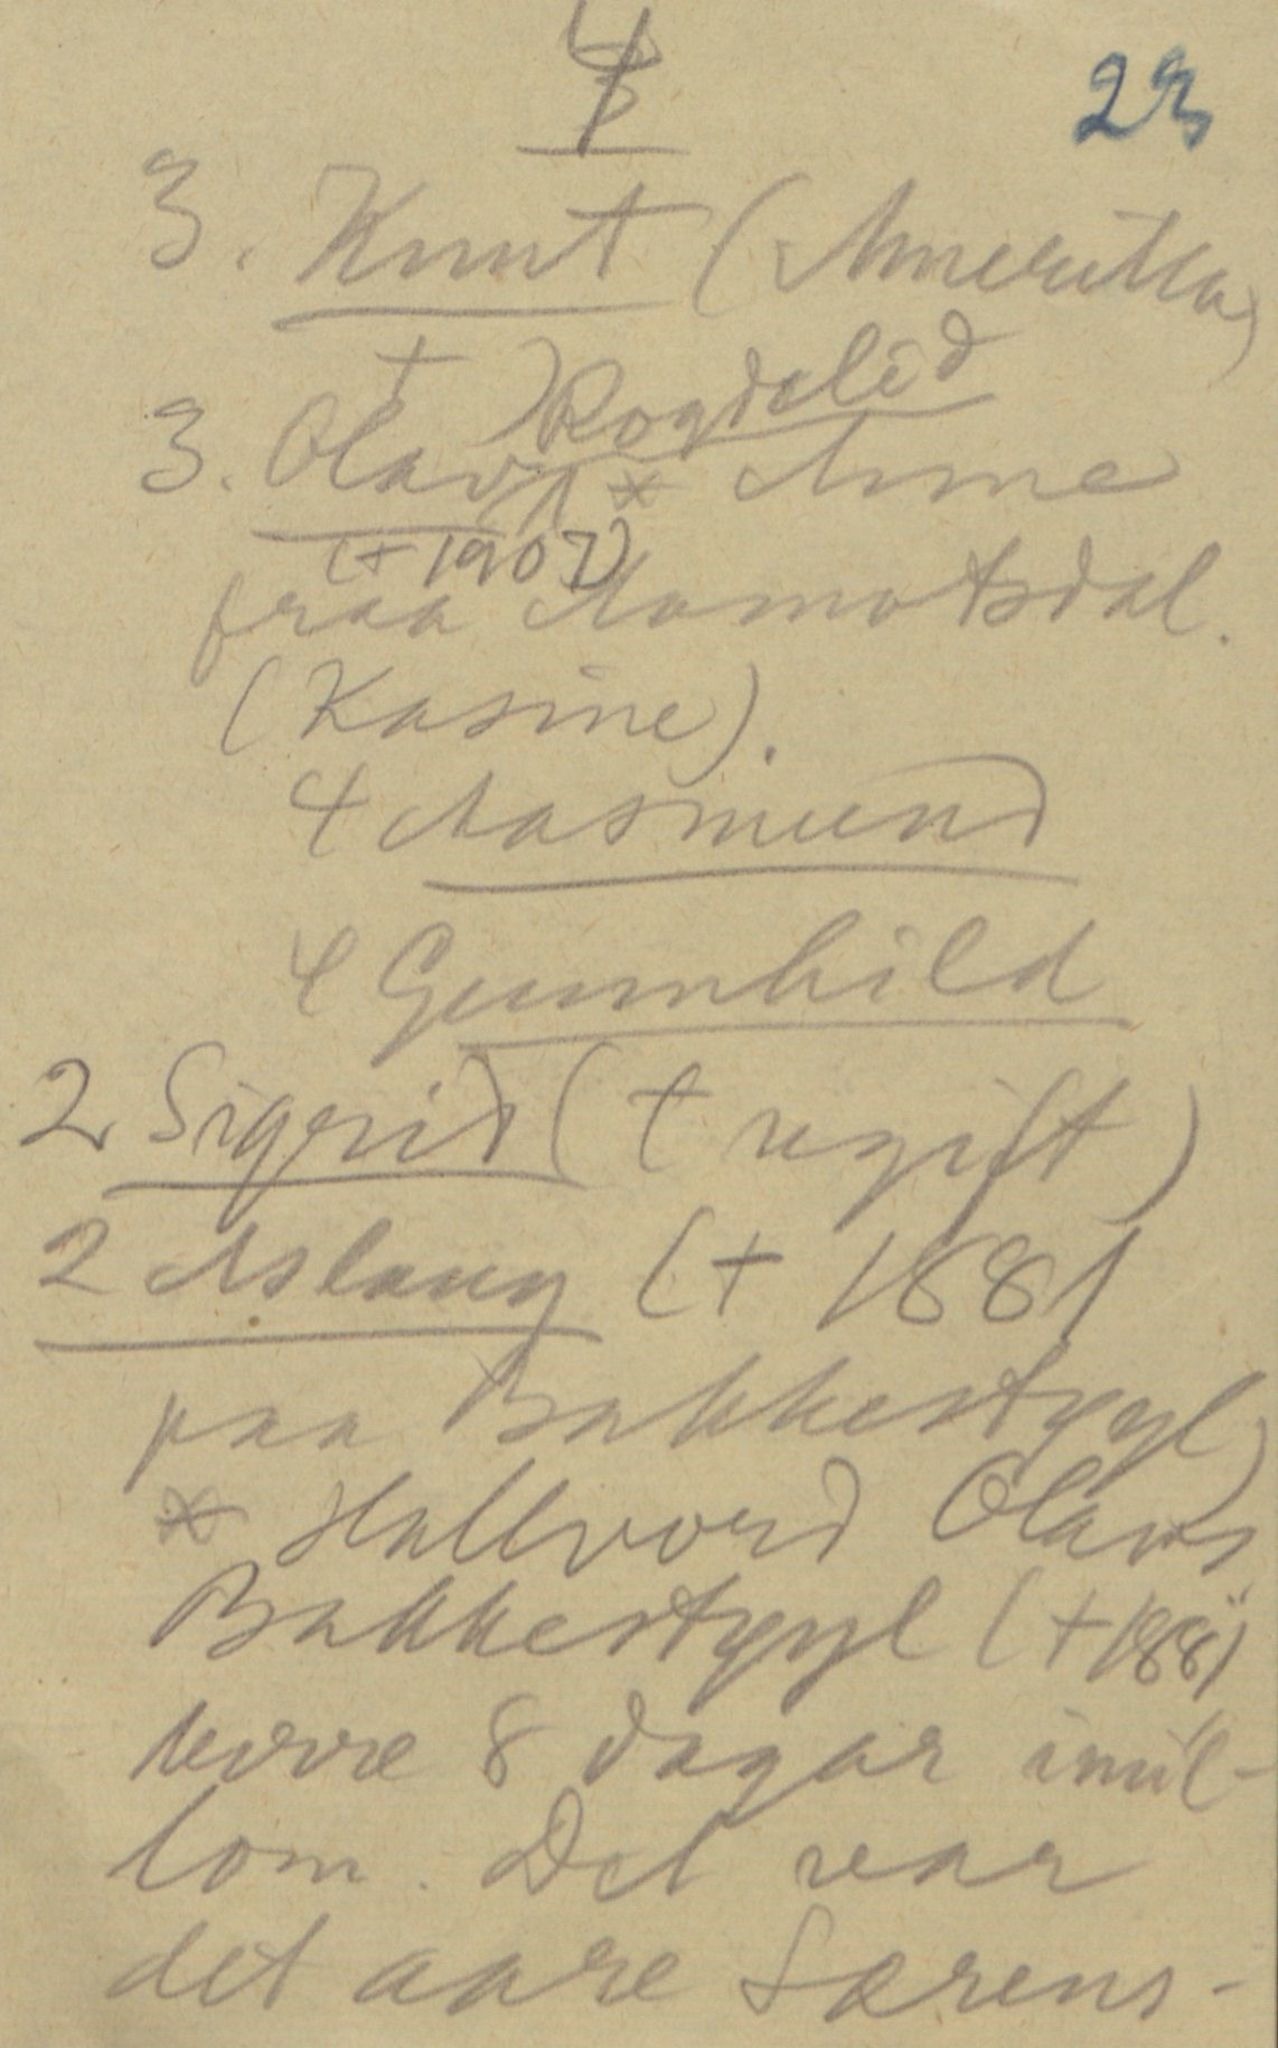 4
23
3. Knut (Amerika)
+ Rogdelid
3. Olav * Anne
(+ 1907)
fraa Aamotsdal.
(Kasine).
4 Aasmund
4 Gunnhild
2 Sigrid (+ ugift)
2 Aslaug (+ 1881
paa Bakkestyyl)
* Hallvord Olavs
Bakkestyyl (+ 188)
berre 8 dagar imil-
lom. Det var
det aare Sørens-